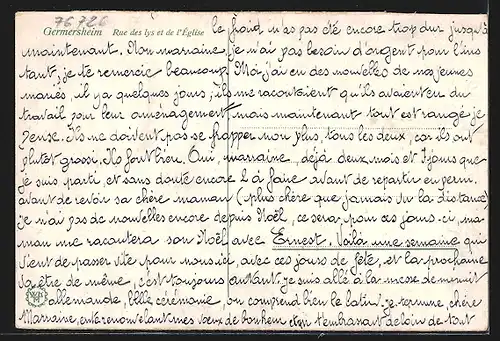 76726
Germersheim Rue des lys et de l'Église
le froid n'as pas été encore trop dur jusqu'à
maintenant. Non marraine, je n'ai pas besoin d'argent pour l'ins
tant, je te remercie beaucoup. Moi j'ai eu des nouvelles de nos jeunes
mariés, il y a quelques jours, ils me racontaient qu'ils avaient eu du
travail pour leur aménagement mais maintenant tout est rangé je
pense. Ils ne doivent pas se frapper non plus, tous les deux, car ils ont
plutot grossi. Ils font bien. Oui, marraine, déjà deux mois et 7 jours que
je suis parti, et sans doute encore 2 à faire avant de repartir en perm.
avant de revoir sa chère maman (plus chère que jamais vu la distance)
je n'ai pas de nouvelles encore depuis Noël, ce sera pour ces jours-ci ma-
man me racontera son Noël avec Ernest. Voilà une semaine qui
vient de passer vite pour nous ici, avec ces jours de fête, et la prochaine
va être de même, c'est toujours autant. je suis allé à la messe de minuit
allemande, belle cérémonie, on comprend bien le latin. je termine, chère
Marraine, en te renouvelant mes vœux de bonheur et en t'embrassant de loin de tout